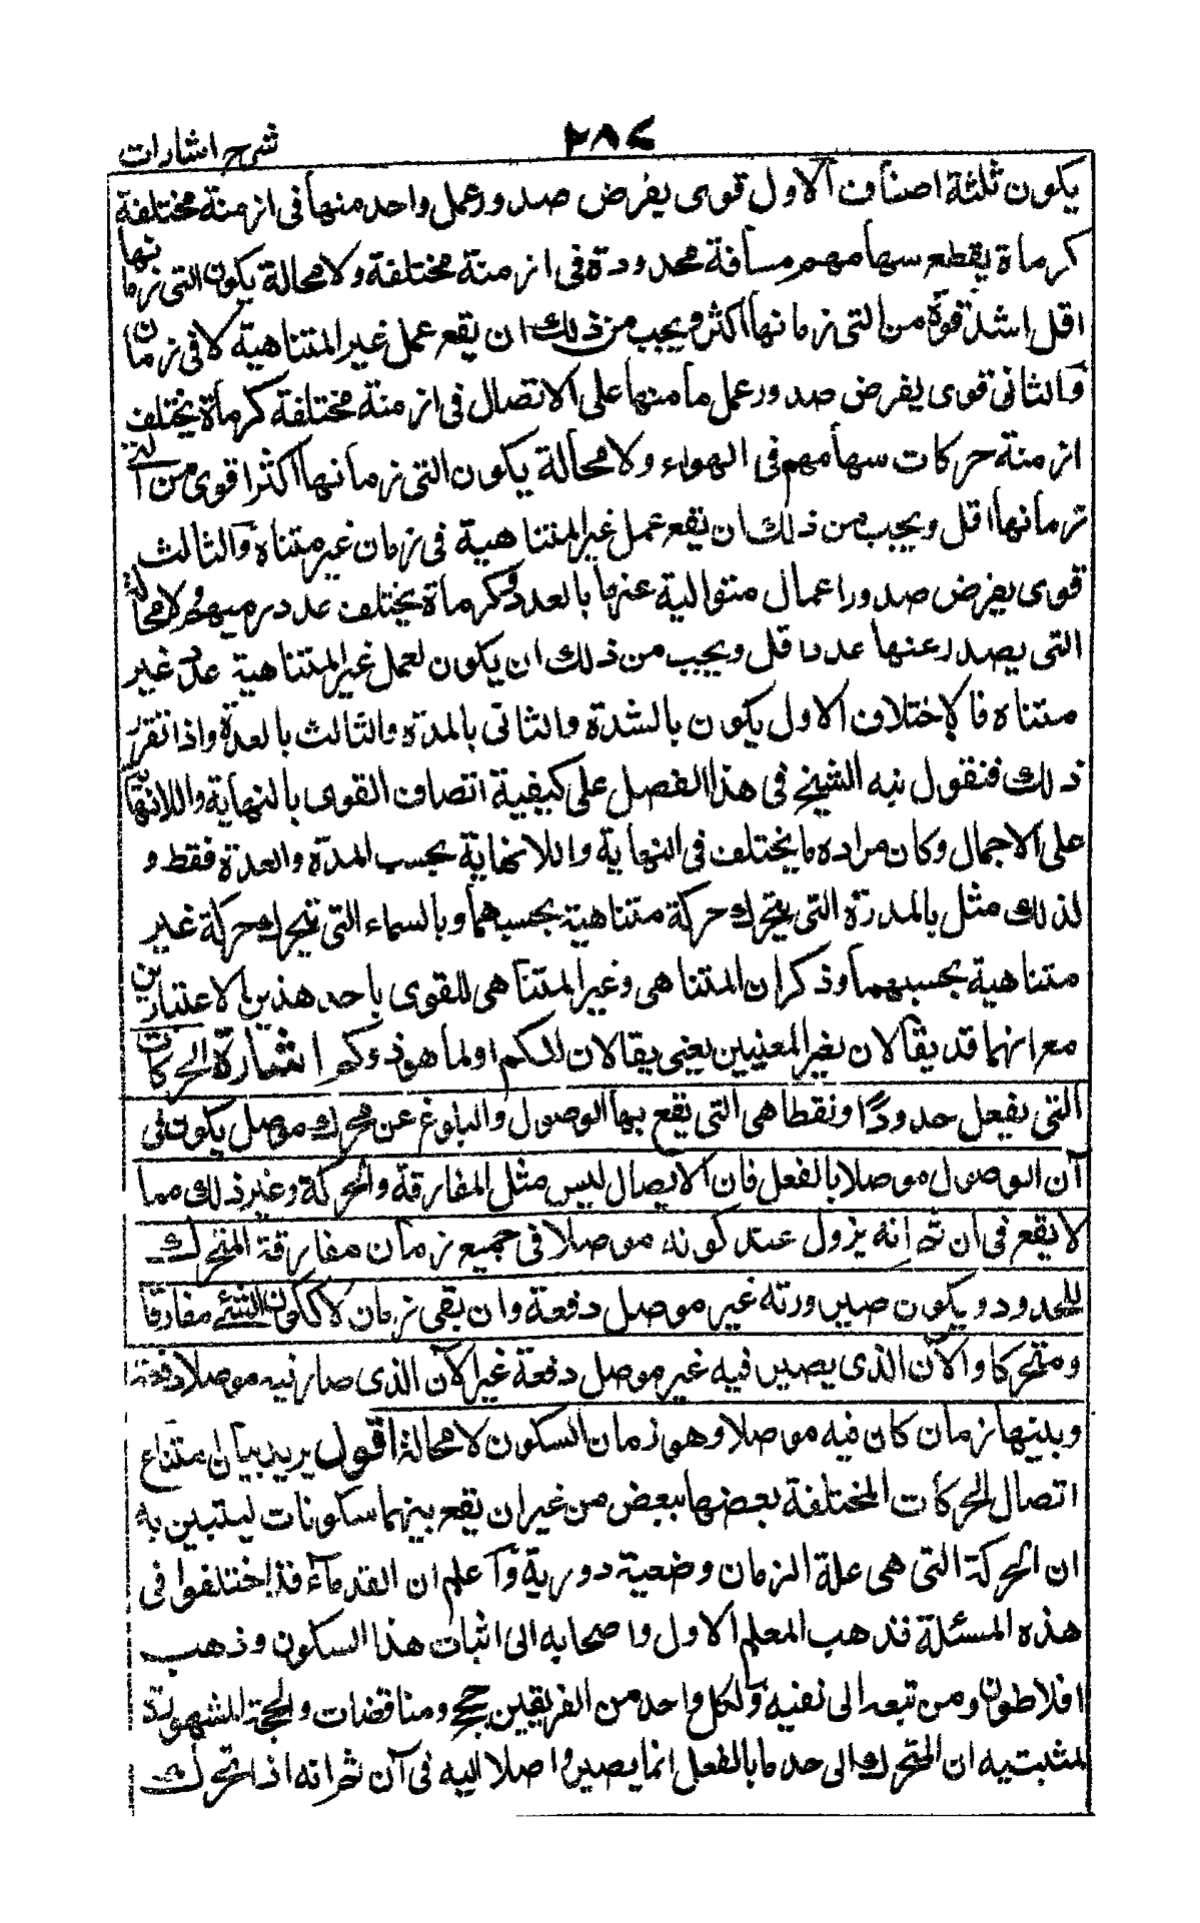 شرح اشارات
٢٨٤
يكون ثلثة اصناف الاول قوى يفرض صدور عمل واحد منها فى ازمنة مختلفة
كرماة يقطع سهامهم مسافة محدودة فى ازمنة مختلفة ولا محالة يكون التى زمانها
اقل اشد قوة من التى زمانها اكثر ويجب من ذلك ان يقع عمل غير المتناهية لا فى زمان
والثانى قوى يفرض صدور عمل ما منها على الاتصال فى ازمنة مختلفة كرماة يختلف
ازمنة حركات سهامهم فى الهواء ولا محالة يكون التى زمانها اكثر اقوى من التى
زمانها اقل ويجب من ذلك ان يقع عمل غير المتناهية فى زمان غير متناه والثالث
قوى يفرض صدور اعمال متوالية عنها بالعدد كرماة يختلف عدد رميهم ولا محالة
التى يصدر عنها عدد اقل ويجب من ذلك ان يكون لعمل غير المتناهية عدد غير
متناه فالاختلاف الاول يكون بالشدة والثانى بالمدة والثالث بالعدة واذا تقرر
ذلك فنقول نبه الشيخ فى هذا الفصل على كيفية اتصاف القوى بالنهاية واللانهاية
على الاجمال وكان مراده ما يختلف فى النهاية واللانهاية بحسب المدة والعدة فقط و
لذلك مثل بالمدرة التى يتحرك حركة متناهية بحسبهما وبالسماء التى تتحرك حركة غير
متناهية بحسبهما وذكر ان المتناهى وغير المتناهى للقوى باحد هذين الاعتبارين
مع انهما قد يقالان بغير المعنيين يعنى يقالان للكم او لما هو ذو كم اشارة الحركات
التى يفعل حدودًا ونقطا هى التى يقع بها الوصول والبلوغ عن محرك موصل يكون فى
آن الوصول موصلا بالفعل فان الايصال ليس مثل المفارقة والحركة وغير ذلك مما
لا يقع فى ان ثم انه يزول عنه كونه موصلا فى جميع زمان مفارقة المتحرك
للحدود ويكون صيرورته غير موصل دفعة وان بقى زمان لا ككون الشئ مفارقا
ومتحركا والآن الذى يصير فيه غير موصل دفعة غير الآن الذى صار فيه موصلا دفعة
وبينهما زمان كان فيه موصلا وهو زمان السكون لا محالة اقول يريد بيان امتناع
اتصال الحركات المختلفة بعضها ببعض من غير ان يقع بينهما سكونات ليتبين به
ان الحركة التى هى علة الزمان وضعية دورية وآعلم ان القدماء قد اختلفوا فى
هذه المسئلة فذهب المعلم الاول واصحابه الى اثبات هذا السكون وذهب
افلاطون ومن تبعه الى نفيه ولكل واحد من الفريقين حجج ومناقضات والحجة المشهورة
لمثبتيه ان المتحرك الى حد ما بالفعل انما يصير واصلا اليه فى آن ثم انه اذا تحرك